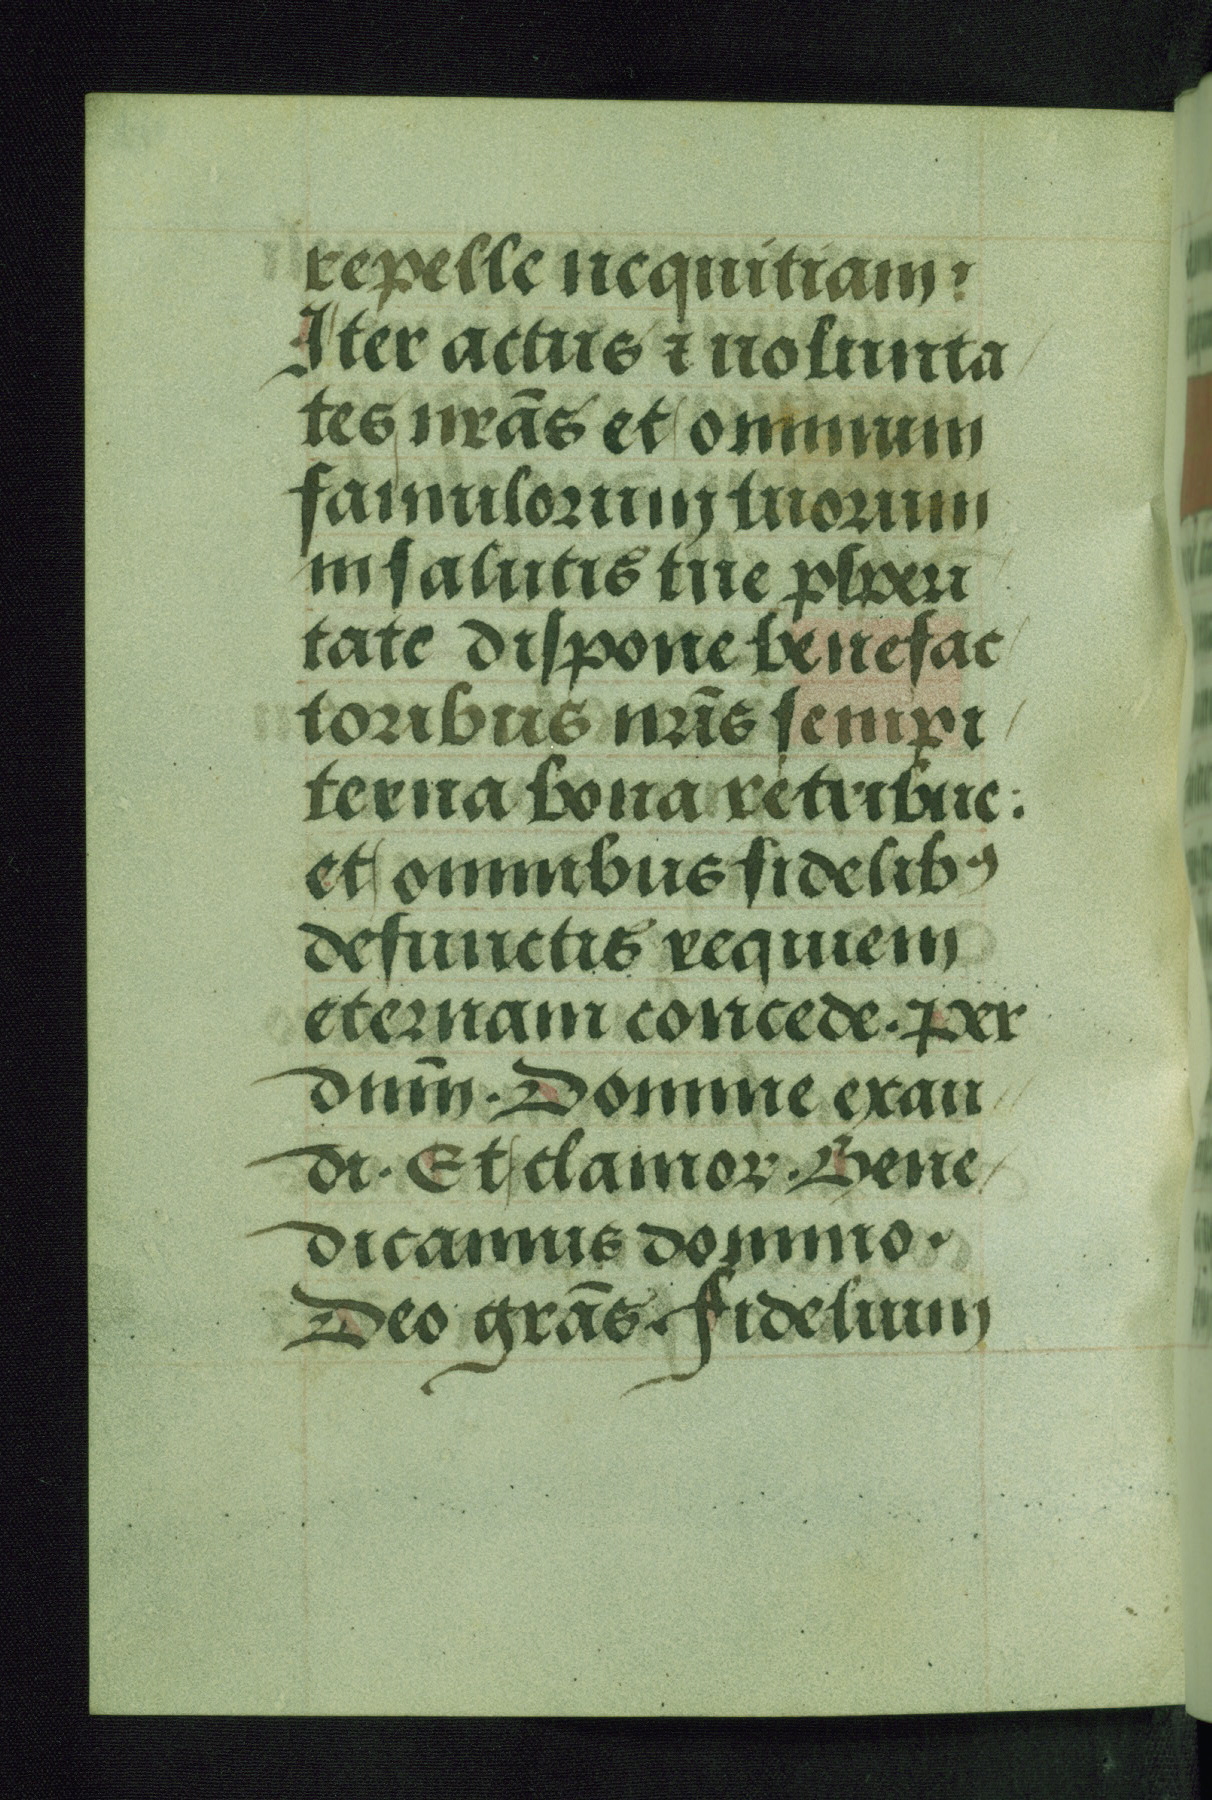 repelle nequitiam:
Iter actus ⁊ uolunta
tes nrās et omnium
famulorum tuorum
in salutis tue ꝓsperi
tate dispone benefac
toribus nrīs sempi
terna bona retribue:
et omnibus fidelibꝰ
defunctis requiem
eternam concede. Per
dnm̄. Domine exau
di. Et clamor. Bene
dicamus domino.
Deo grās. Fidelium